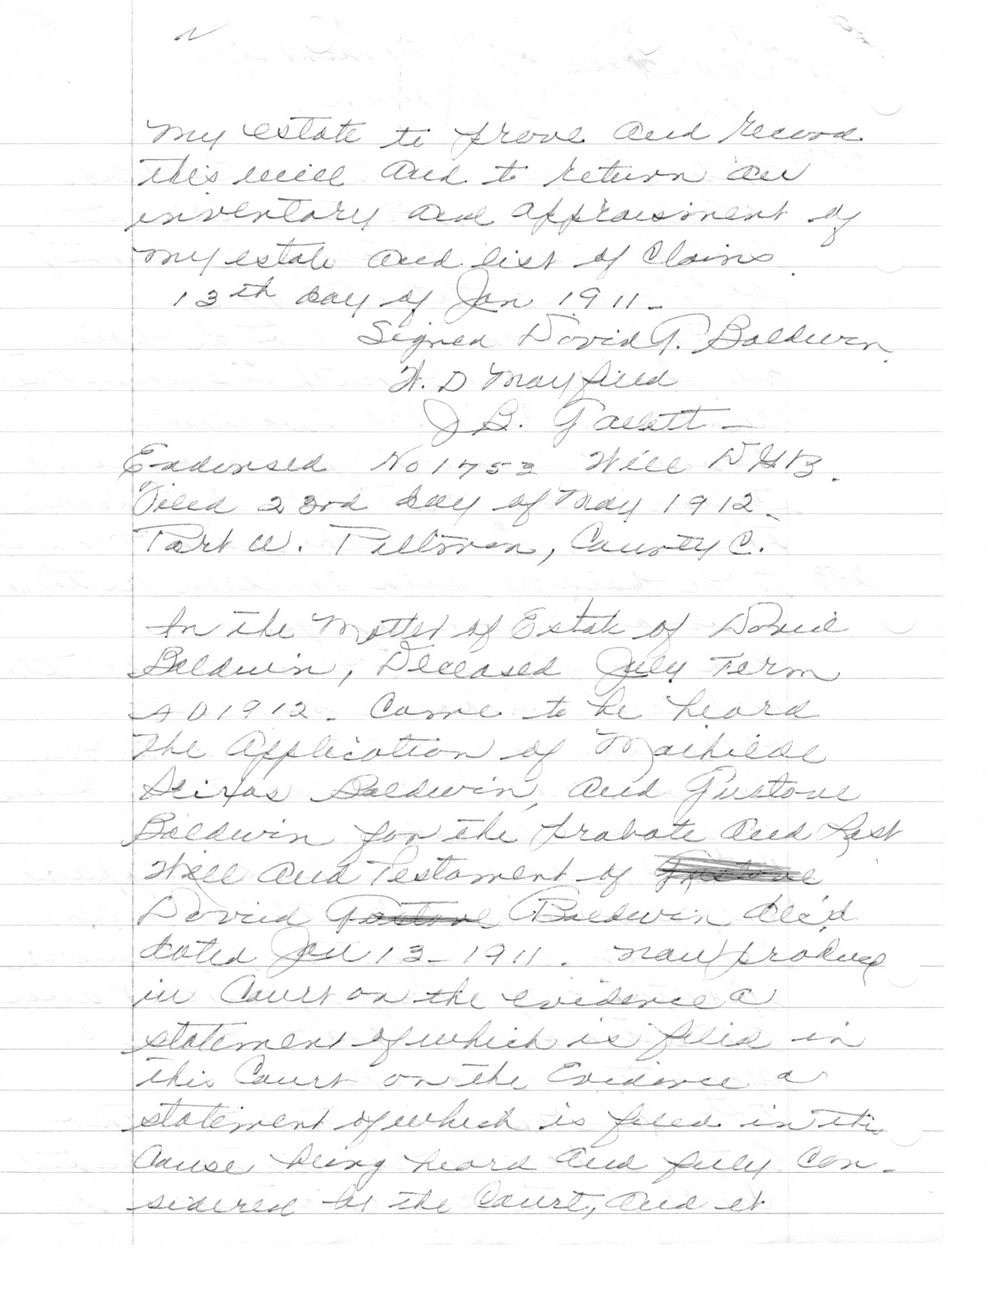 2
My estate to prove and record
this will and to return an
inventory and appraisment of
my estate and list of Claims.
13th day of Jan 1911-
Signed David G. Baldwin
W. D Mayfield
J B.
Endorsed No 1753 Will D G B.
Filed 23rd day of May 1912-
W. County C.
In the Matter of Estate of David
Baldwin, Deceased July Term
A D 1912- Came to be heard
The Application of Mathilde
Seixas Baldwin, and Gustave
Baldwin for the Probate and Last
Will and Testament of Gustave
David Gustave Baldwin dec'd
dated Jan 13-1911. now produce
in Court on the evidence a
statement of which is filed in
this Court on the Evidence a
statement of which is filed in the
Cause, being heard and fully Con-
sidered by the Court, and it